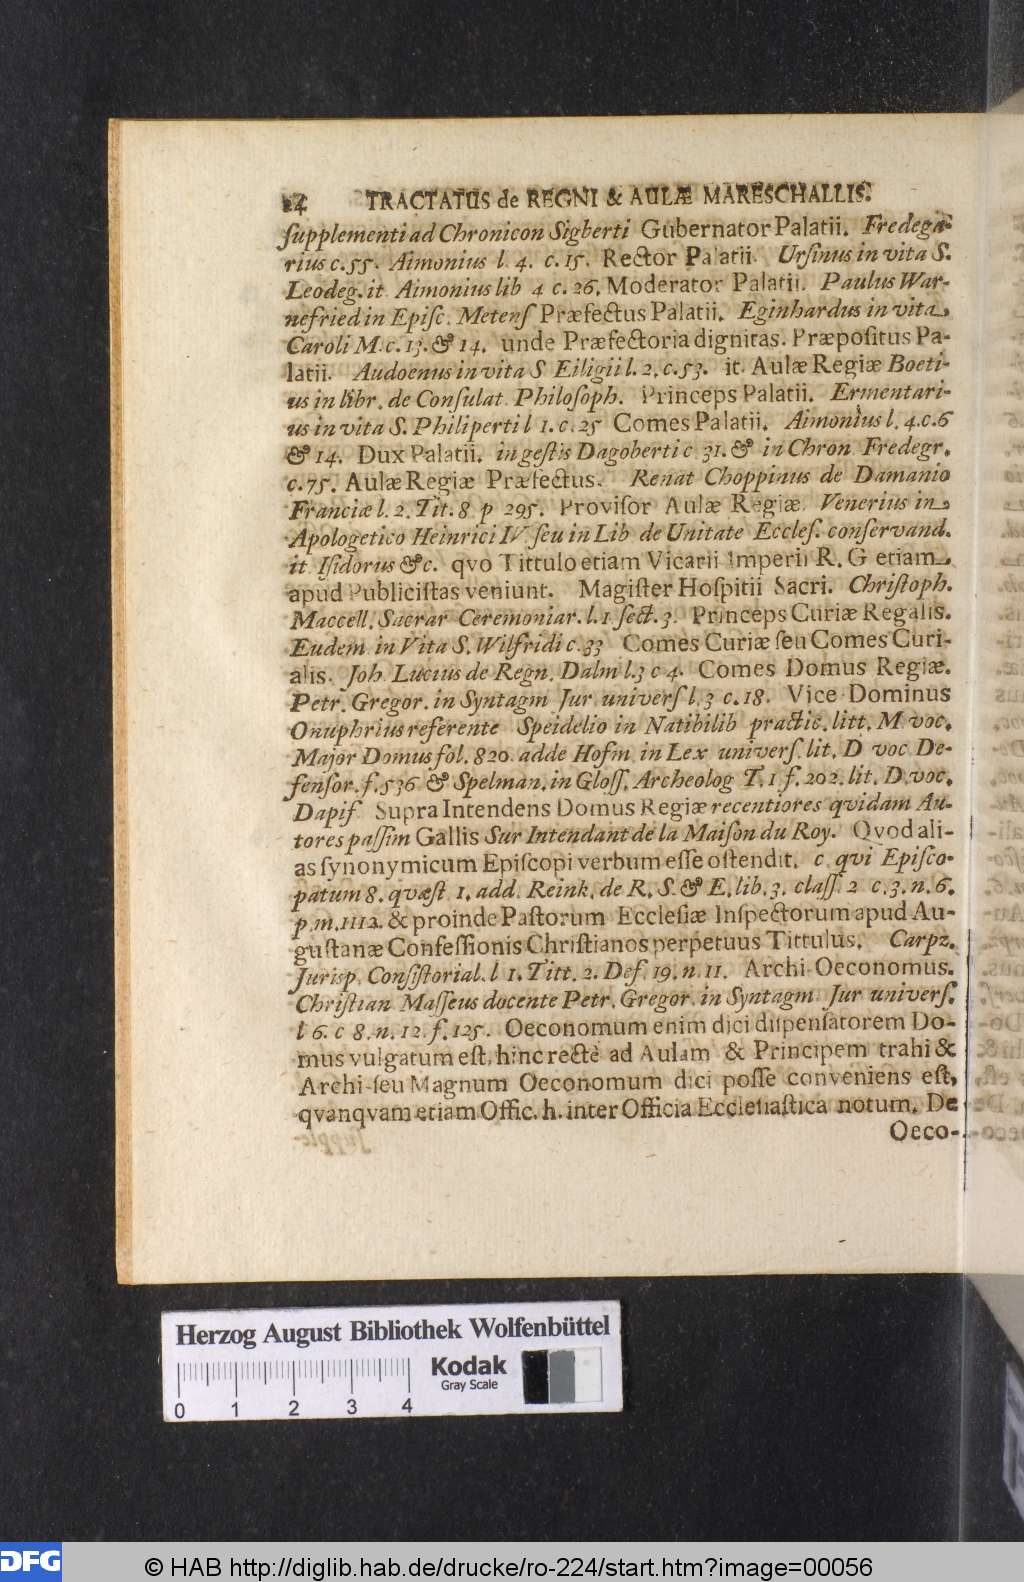 24 TRACTATUS de REGNI & AULÆ MARESCHALLIS.
ſupplementi ad Chronicon Sigberti Gubernator Palatii. Fredega-
rius c. 55. Aimonius l. 4. c. 15. Rector Palatii. Urſinus in vita S.
Leodeg. it Aimonius lib 4 c. 26. Moderator Palatii. Paulus War-
nefried in Epiſc. Metenſ Præfectus Palatii. Eginhardus in vita
Caroli M. c. 13. & 14. unde Præfectoria dignitas. Præpoſitus Pa-
latii. Audoenus in vita S Eiligii l. 2. c. 53. it. Aulæ Regiæ Boeti-
us in libr. de Conſulat. Philoſoph. Princeps Palatii. Ermentari-
us in vita S. Philiperti l 1. c. 25 Comes Palatii. Aimonius l. 4. c. 6
& 14. Dux Palatii. in geſtis Dagoberti c 31. & in Chron Fredegr.
c. 75. Aulæ Regiæ Præfectus. Renat Choppinus de Damanio
Franciæ l. 2. Tit. 8 p 295. Proviſor Aulæ Regiæ. Venerius in
Apologetico Heinrici IV ſeu in Lib de Unitate Eccleſ. conſervand.
it Iſidorus & c. qvo Tittulo etiam Vicarii Imperii R. G etiam
apud Publiciſtas veniunt. Magiſter Hoſpitii Sacri. Chriſtoph.
Maccell. Sacrar Ceremoniar. l. 1 ſect. 3. Princeps Curiæ Regalis.
Eudem in Vita S. Wilfridi c. 33 Comes Curiæ ſeu Comes Curi-
alis. Joh Lucius de Regn. Dalm l. 3 c 4. Comes Domus Regiæ.
Petr. Gregor. in Syntagm Jur univerſ l. 3 c. 18. Vice Dominus
Onuphrius referente Speidelio in Natibilib practic. litt. M voc.
Major Domus fol. 820. adde Hofm in Lex univerſ. lit. D voc De-
fenſor. f. 536 & Spelman. in Gloſſ. Archeolog T. 1 f. 202. lit. D. voc.
Dapif Supra Intendens Domus Regiæ recentiores qvidam Au-
tores paſſim Gallis Sur Intendant de la Maiſon du Roy. Qvod ali-
as ſynonymicum Epiſcopi verbum eſſe oſtendit. c. qvi Epiſco-
patum 8. qvæſt 1. add. Reink. de R. S. & E. lib. 3. claſſ. 2 c. 3. n. 6.
p. m. 1112. & proinde Paſtorum Eccleſiæ Inſpectorum apud Au-
guſtanæ Confeſſionis Chriſtianos perpetuus Tittulus. Carpz.
Jurisp. Conſiſtorial. l 1. Titt. 2. Def. 19. n. 11. Archi-Oeconomus.
Chriſtian Maſſeus docente Petr. Gregor. in Syntagm Jur univerſ.
l 6. c 8. n. 12. f. 125. Oeconomum enim dici diſpenſatorem Do-
mus vulgatum eſt, hinc rectè ad Aulam & Principem trahi &
Archi-ſeu Magnum Oeconomum dici poſſe conveniens eſt,
qvanqvam etiam Offic. h. inter Officia Eccleſiaſtica notum. De
Oeco-
Herzog August Bibliothek Wolfenbüttel
Kodak
Gray Scale
0 1 2 3 4
DFG © HAB http://diglib.hab.de/drucke/ro-224/start.htm?image=00056